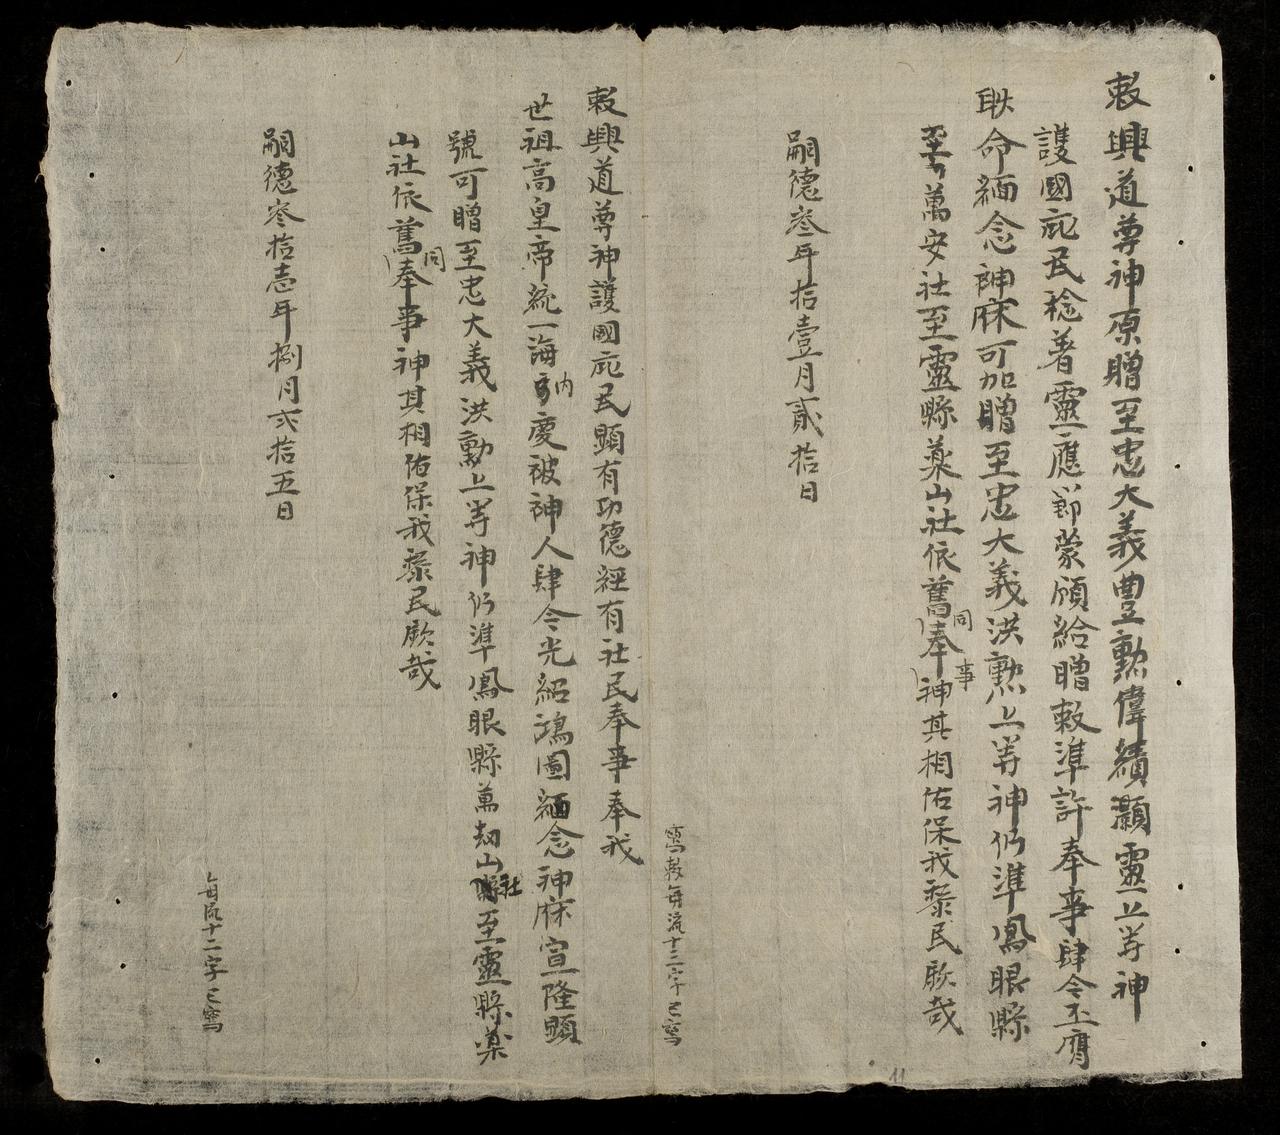 敕興道尊神原贈至忠大義豐勳偉績灝靈上等神
護國庇民稔著靈應節蒙頒給贈敕準許奉事肆今丕膺
耿命緬念神庥可加贈至忠大義洪勳上等神仍準鳳眼縣
萬安社至靈縣藥山社依舊同奉事神其相佑保我黎民欽哉
嗣德叁年拾壹月貳拾日
寫敕每流十三字已寫
敕興道尊神護國庇民顯有功德經有社民奉事奉我
世祖高皇帝統一海內慶被神人肆今光紹鴻圖緬念神庥宣隆顯
號可贈至忠大義洪勳上等神仍準鳳眼縣萬刼山社至靈縣藥
山社依舊同奉事神其相佑保我黎民欽哉
嗣德叁拾壱年捌月弍拾五日
每流十二字已寫
11